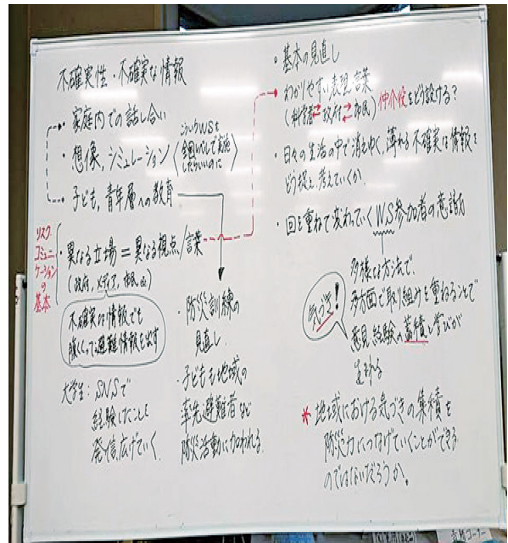 不確実性・不確実な情報
・家庭内での話し合い
・想像、シミュレーション
こういうWSを
全国いろいろで実施
したらいいのに
・子ども、青年層への教育
リスク
コミュニ
ケーション
の
基本
・異なる立場=異なる視点/言葉
(政府、メディア、市民 etc)
不確実な情報でも
避難情報を出す
大学生:SNSで
経験したことを
発信、広げていく。
・防災訓練の
見直し
・子どもも地域の
率先避難者など
防災活動に加われる
・基本の見直し
・わかりやすい表現、言葉
(科学者⇄政府⇄市民)仲介役をどう設ける?
・日々の生活の中で消えゆく、薄れる不確実な情報を
どう捉え、考えていくか
・回を重ねて変わっていくWS参加者の意識
気づき!
多様な方法で、
多方面で取り組みを重ねることで
意見、経験の蓄積と学びが
生まれる
* 地域における気づきの集積を
防災力につなげていくことができる
のではないだろうか。